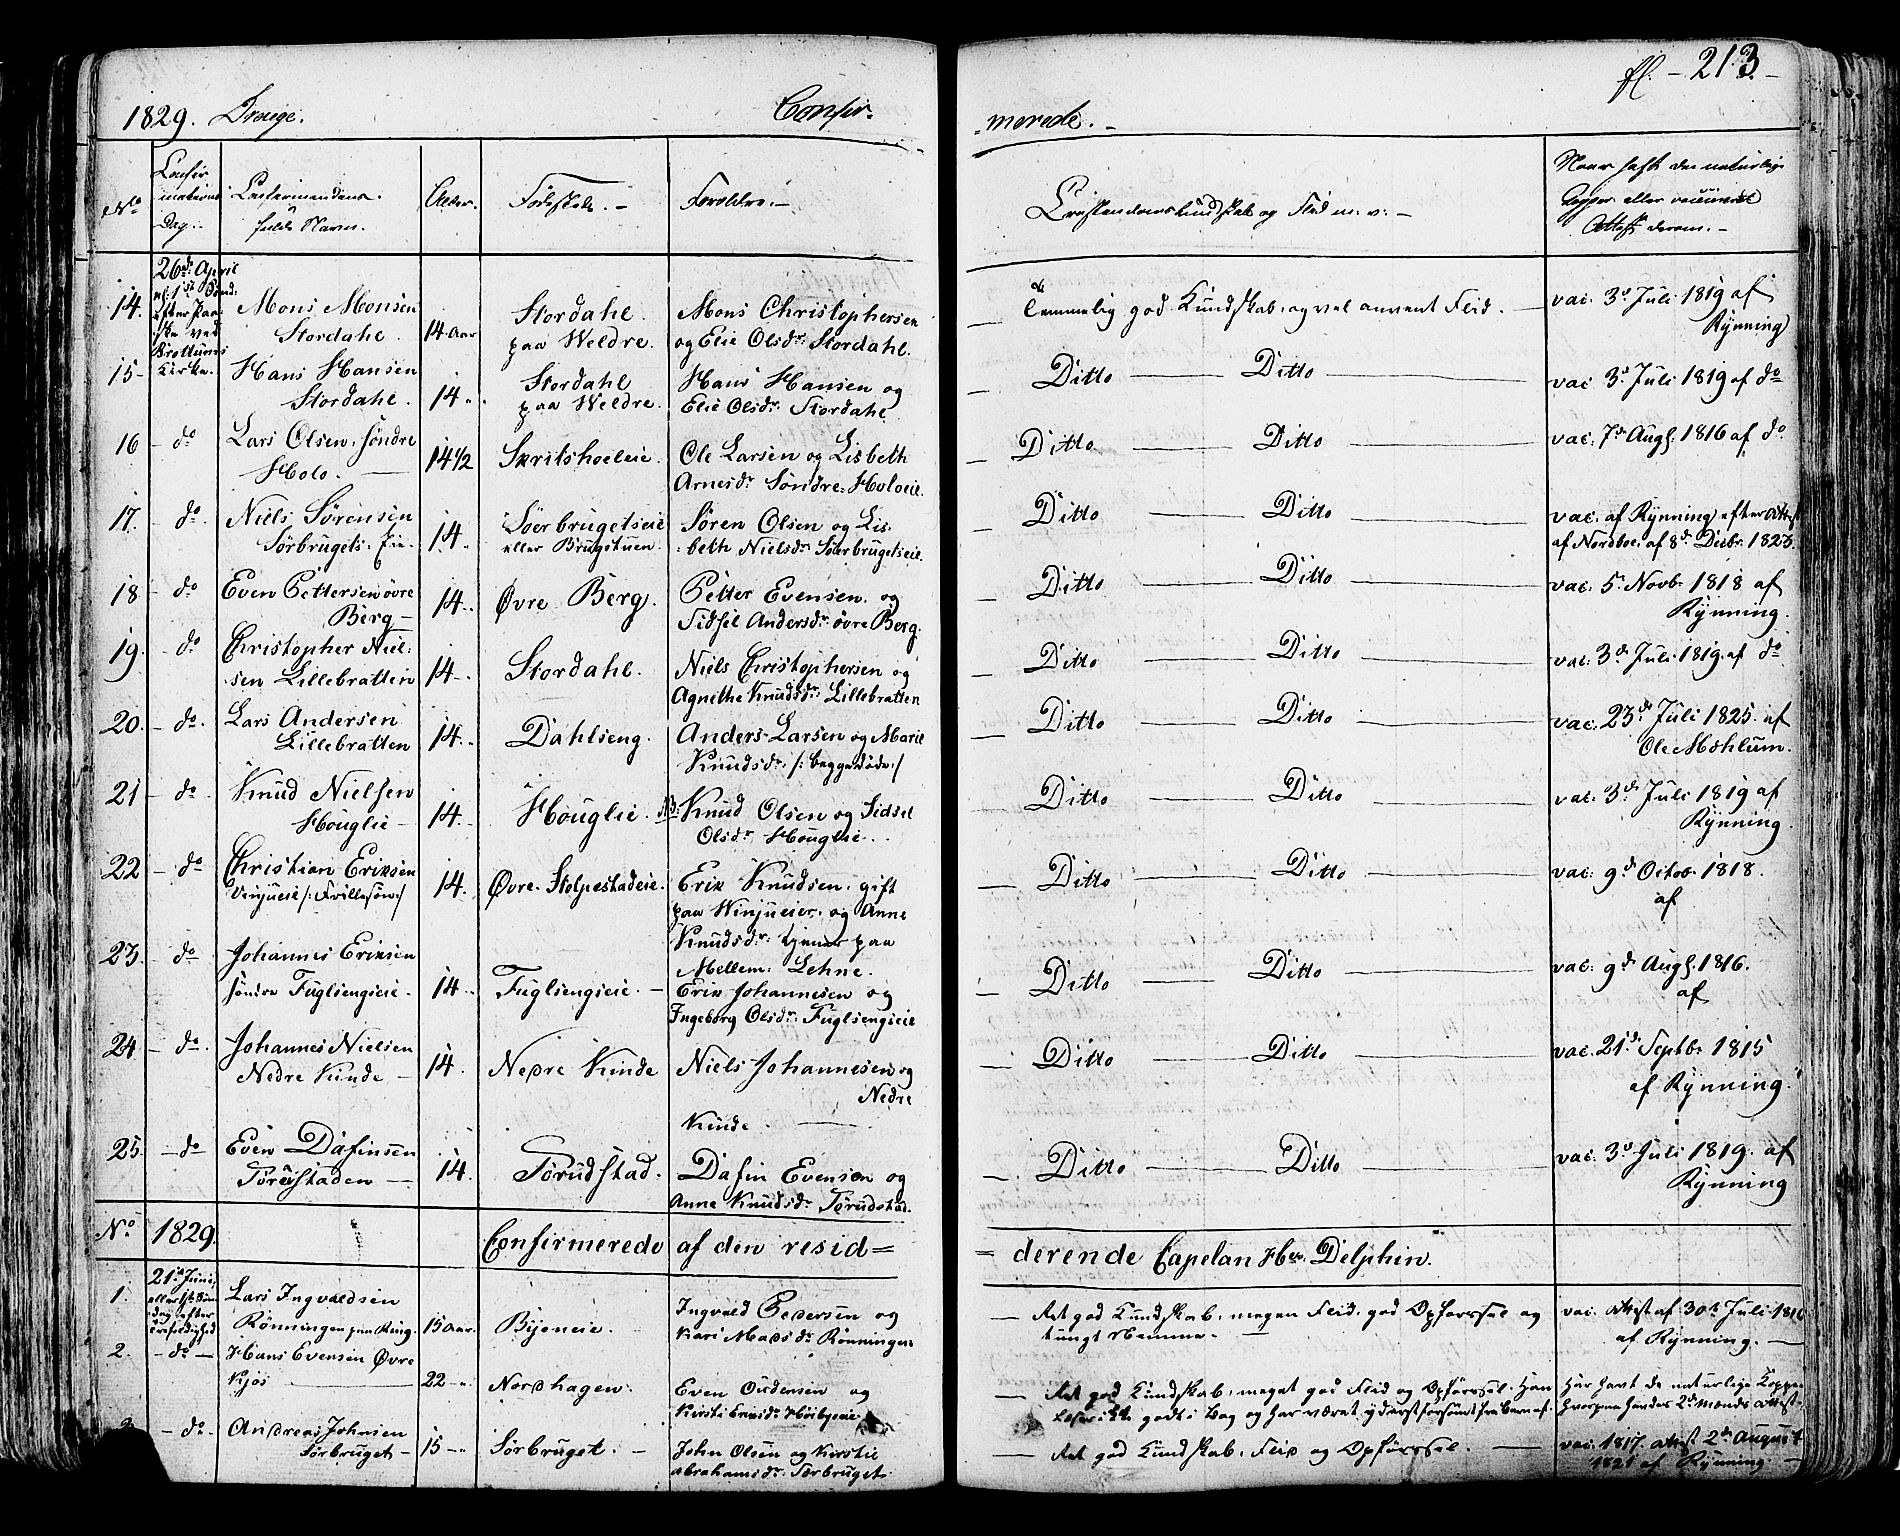 fl. - 213 -
1829. Drenge. Confir-
-merede. -
No
Confirmations Dag.
Confirmandens fulde Navn.
Alder.
Fødested. -
Forældre. -
Cristendomskundskab og Flid m. v. -
Naar haft de naturlige Kopper eller vaccineret Attest derom. -
14. 26de April nf. 1ste Sønd: efter Paaske ved Brottums Kirke.
Mons Monsen Stordahl.
14 Aar
Stordahl paa Weldre.
Mons Christophersen og Elie Olsdr. Stordahl.
Temmelig god Kundskab, og vel anvent Flid. -
vac. 3d Juli 1819 af Rynning
15-
Hans Hansen Stordahl.
14 "
Stordahl paa Weldre.
Hans Hansen og Elie Olsdr. Stordahl
Ditto Ditto
vac. 3d Juli 1819 af do
16 - do
Lars Olsen, Søndre Holo. -
14 1/2
Skritsholeie.
Ole Larsen og Lisbeth Arnesdr. Søndre-Holoeie.
Ditto Ditto
vac. 7d Augs. 1816 af do
17. - do.
Niels Sörensen Sörbrugets-Eie-
14.
Söerbrugetseie eller Brugstuen.
Sören Olsen og Lisbeth Nielsdr. Söerbrugetseie.
Ditto Ditto
vac. af Rynning efter Attest af Nordboe, af 8d Decbr. 1823.
18 - do
Even Pettersen övre Berg -
14.
Övre Berg.
Petter Evensen og Sidsel Andersdr. övre Berg.
Ditto Ditto
vac. 5. Novb. 1818 af Rynning.
19. - do
Christopher Nielsen Lillebratten
14 -
Stordahl.
Niels Christophersen og Agnethe Knudsdr. Lillebratten
Ditto Ditto
vac. 3d Juli 1819. af do
20. - do.
Lars Andersen Lillebratten
14.
Dahlseng.
Anders Larsen og Marie Knudsdr. /: begge döde :/
Ditto Ditto
vac. 23d Juli 1825. af Ole Mæhlum.
21 - do
Knud Nielsen Houglie -
14.
Houglie.
NB: Knud Olsen og Sidsel Olsdr. Houglie.
Ditto Ditto
vac. 3d Juli 1819 af Rynning.
22 - do
Christian Eriksen Vinjueie /: Frillesön :/
14.
Övre-Stolpestadeie.
Erik Knudsen, gift paa Winjueier, og Anne Knudsdr. tjener paa Mellem-Lehne.
Ditto Ditto
vac. 9d Octob. 1818. af
23. - do
Johannes Eriksen söndre Fuglsengseie.
14 -
Fuglsengseie.
Erik Johannesen og Ingeborg Olsdr. Fuglsengseie
Ditto Ditto
vac. 9d Augs. 1816. af
24 - do.
Johannes Nielsen Nedre Kinde -
14.
Nedre Kinde
Niels Johannesen og Nedre Kinde.
Ditto Ditto
vac. 21d Septb. 1815 af Rynning.
25. - do
Even Dafinsen Törudstaden -
14.
Törudstad.
Dafin Evensen og Anne Knudsdr. Törudstad.
Ditto Ditto
vac. 3d Juli 1819. af Rynning
No 1829. Confirmerede af den resid=
=derende Capelan Hr. Delphin.
1. 21d Juni, eller 1ste Söndag efter Trefoldighed
Lars Ingvaldsen Rönningen paa Ring.
15 Aar.
Bijeneie.
Ingvald Pedersen og Kari Madsdr. Rönningen
Ret god Kundskab, megen Flid, god Opförsel og tungt Nemme. -
vac. Attest af 30te Juli 1816 af Rynning. -
2. - do -
Hans Evensen Övre Kjos
22 -
Nordhagen.
Even Andersen og Kirsti
Ret god Kundskab, meget god Flid og Opförsel. Han læser ikke godt i Bog og har været yderst forsömt fra Barn af.
Har havt de naturlige Kopper hvorpaa haves 2de Mænds Attest.
3 - do -
Andreas Johnsen Sörbruget -
15 -
Sörbruget. -
John Olsen og Kirstie Abrahamsdr. Sörbruget.
Ret god Kundskab, Flid og Opförsel. -
vac. 1817. Attest 2d August 1821 af Rynning. -